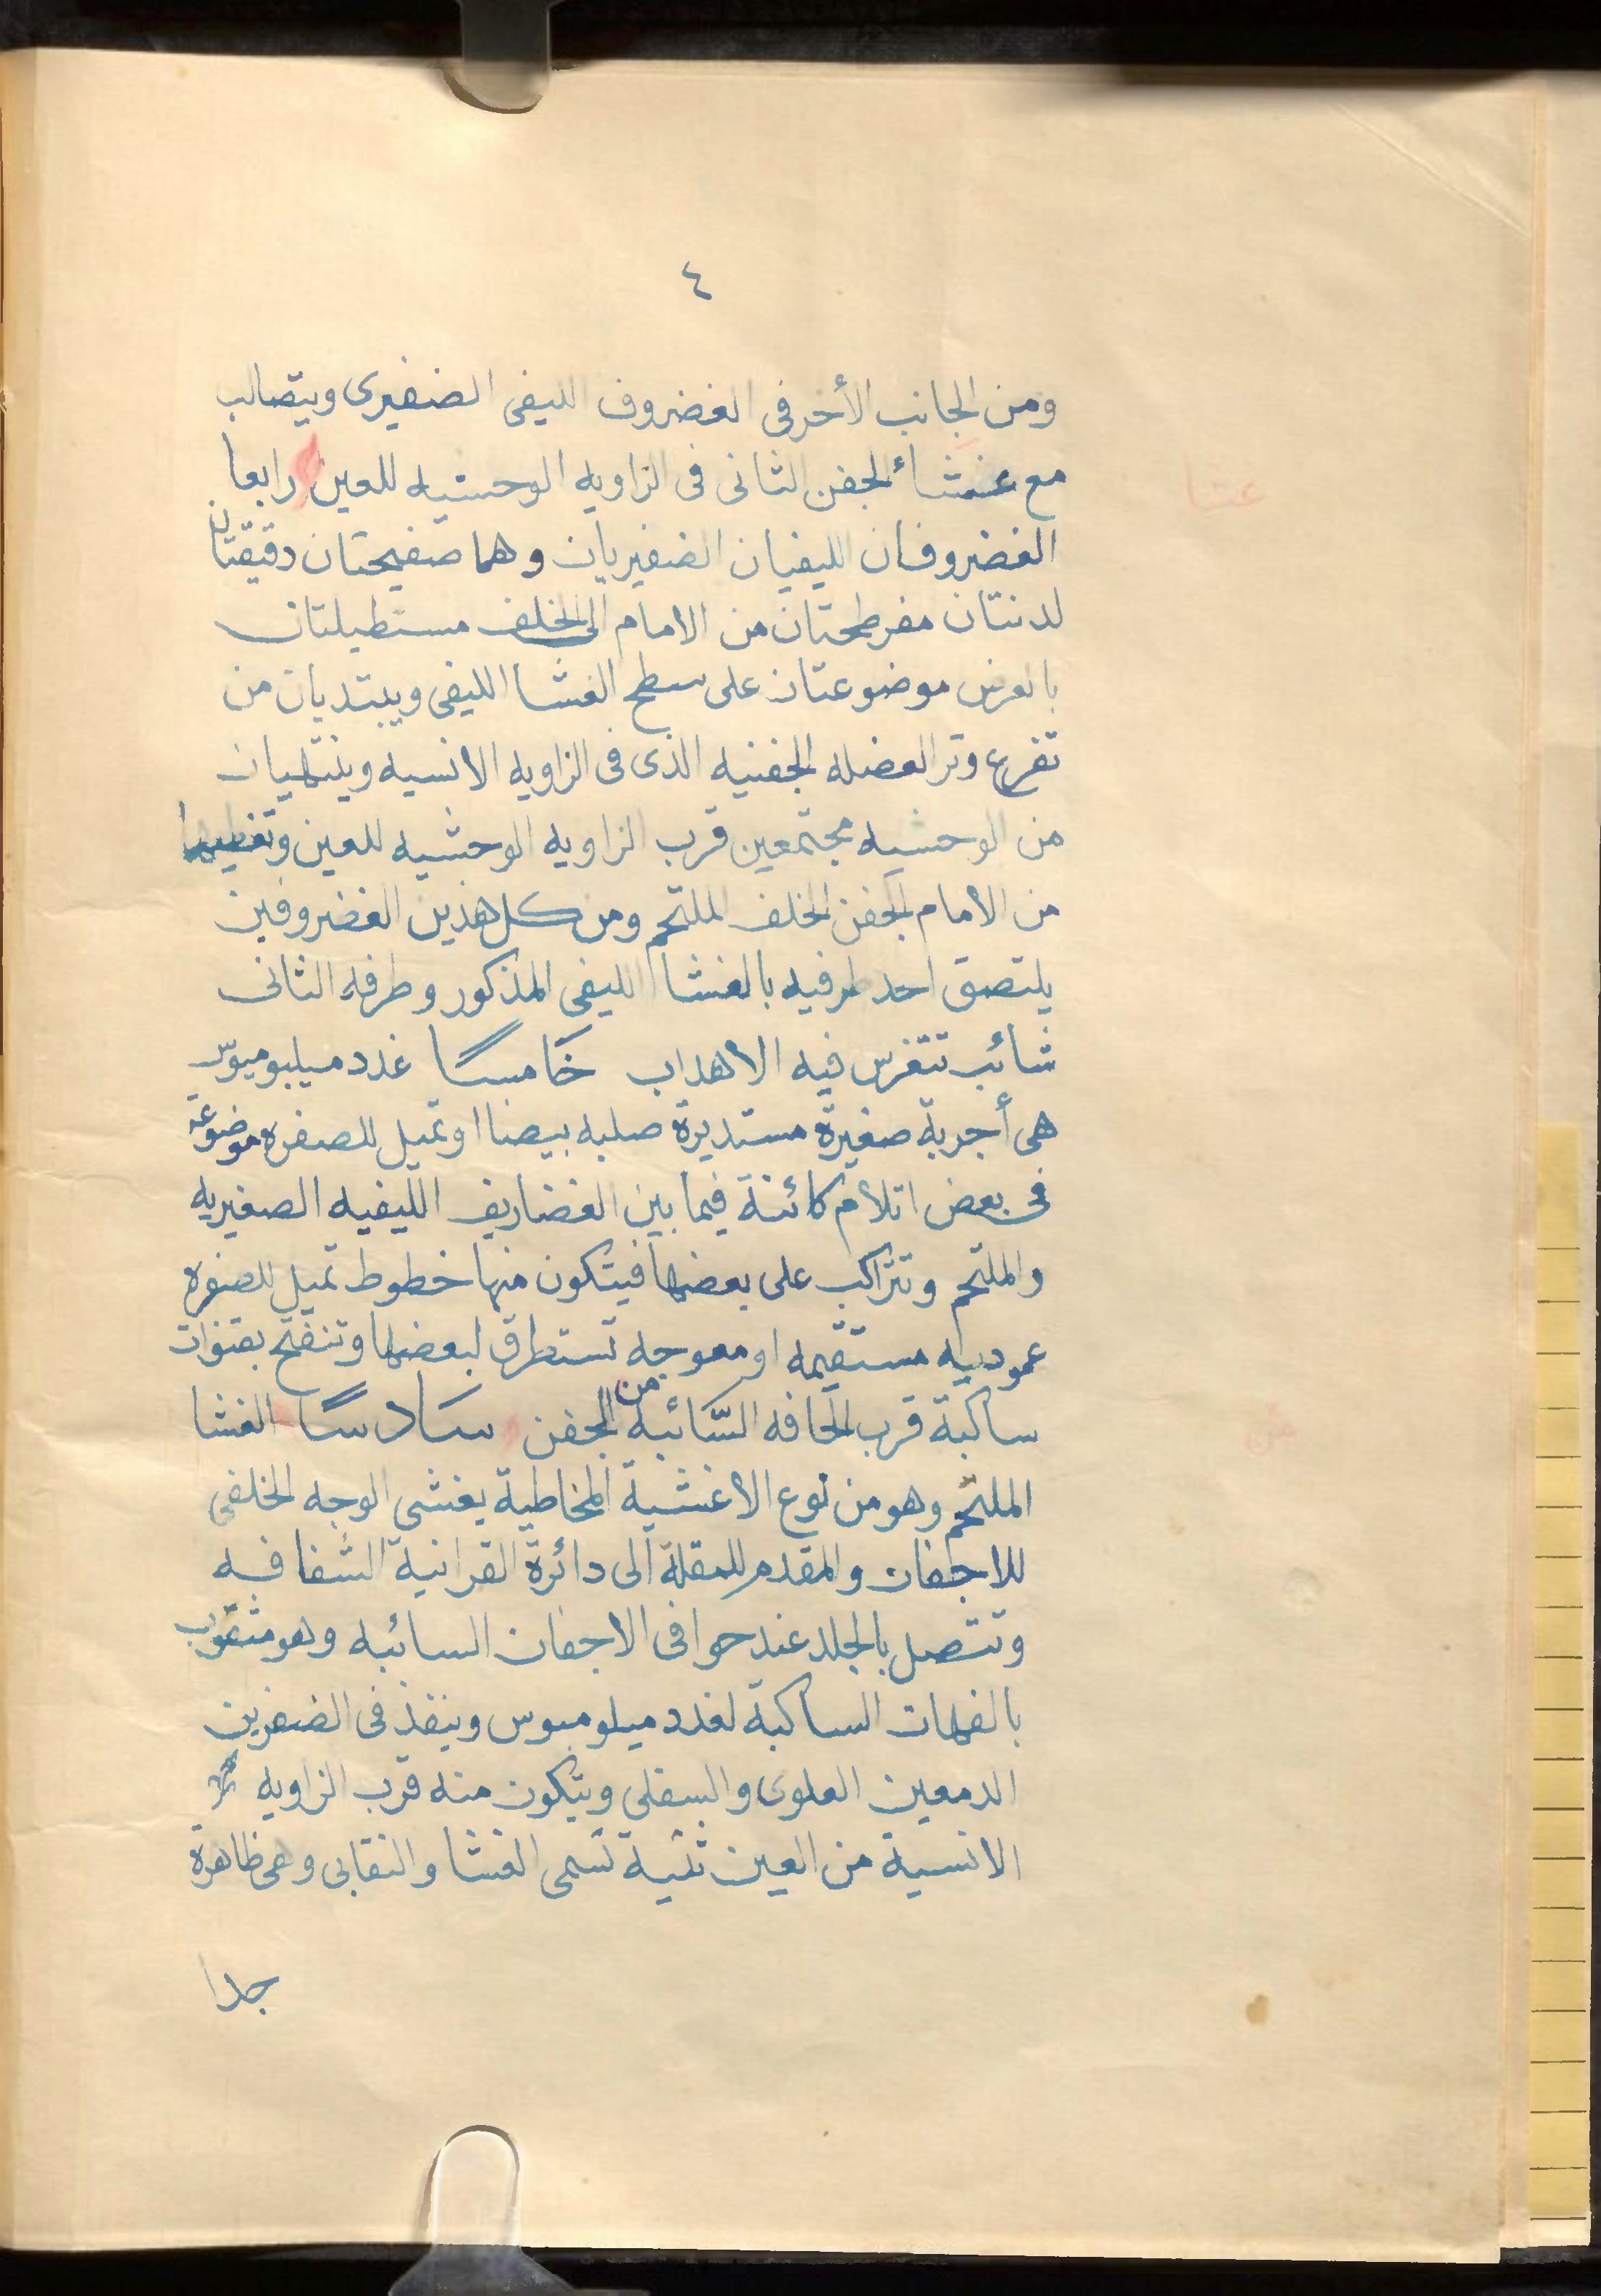 ٤
ومن الجانب الأخر فى الغضروف الليفى الضفيرى ويتصالب
مع غشاء الجفن الثانى فى الزاويه الوحشيه للعين رابعا
الغضروفان الليفيان الضفيريان وهما صفيحتان دقيقتان
لدنتان مفرطحتان من الامام الى الخلف مستطيلتان
بالعرض موضوعتان على سطح الغشا الليفى ويبتديان من
تفرع وتر العضله الجفنيه الذى فى الزاويه الانسيه وينتهيان
من الوحشيه مجتمعين قرب الزاويه الوحشيه للعين وتغطيهما
من الامام الجفن الخلف الملتحم ومن كل هذين الغضروفين
يلتصق احد طرفيه بالغشا الليفى المذكور وطرفه الثانى
شائب تتغرس فيه الاهداب خامسا غدد ميلبوميوس
هى أجربة صغيرة مستديرة صلبه بيضا او تميل للصفره موضوعة
فى بعض اتلام كائنة فيما بين الغضاريف الليفيه الصفيريه
والملتحم وتتراكب على بعضها فيتكون منها خطوط تميل للصفره
عموديه مستقيمه او معوجه تستطرق لبعضها وتنفتح بقنوات
ساكبة قرب الحافه السائبه من الجفن سادسا الغشا
الملتحم وهو من نوع الاغشية المخاطية يغشى الوجه الخلفى
للاجفان والمقدم للمقلة الى دائرة القرانية الشفافه
وتتصل بالجلد عند حوافى الاجفان السائبه وهو مثقوب
بالفهات الساكبة لغدد ميلوميوس وينفذ فى الضفرين
الدمعين العلوى والسفلى ويتكون منه قرب الزاويه
الانسية من العين ثنية تسمى الغشا والنقابى وهى ظاهرة
جدا
عشا
من